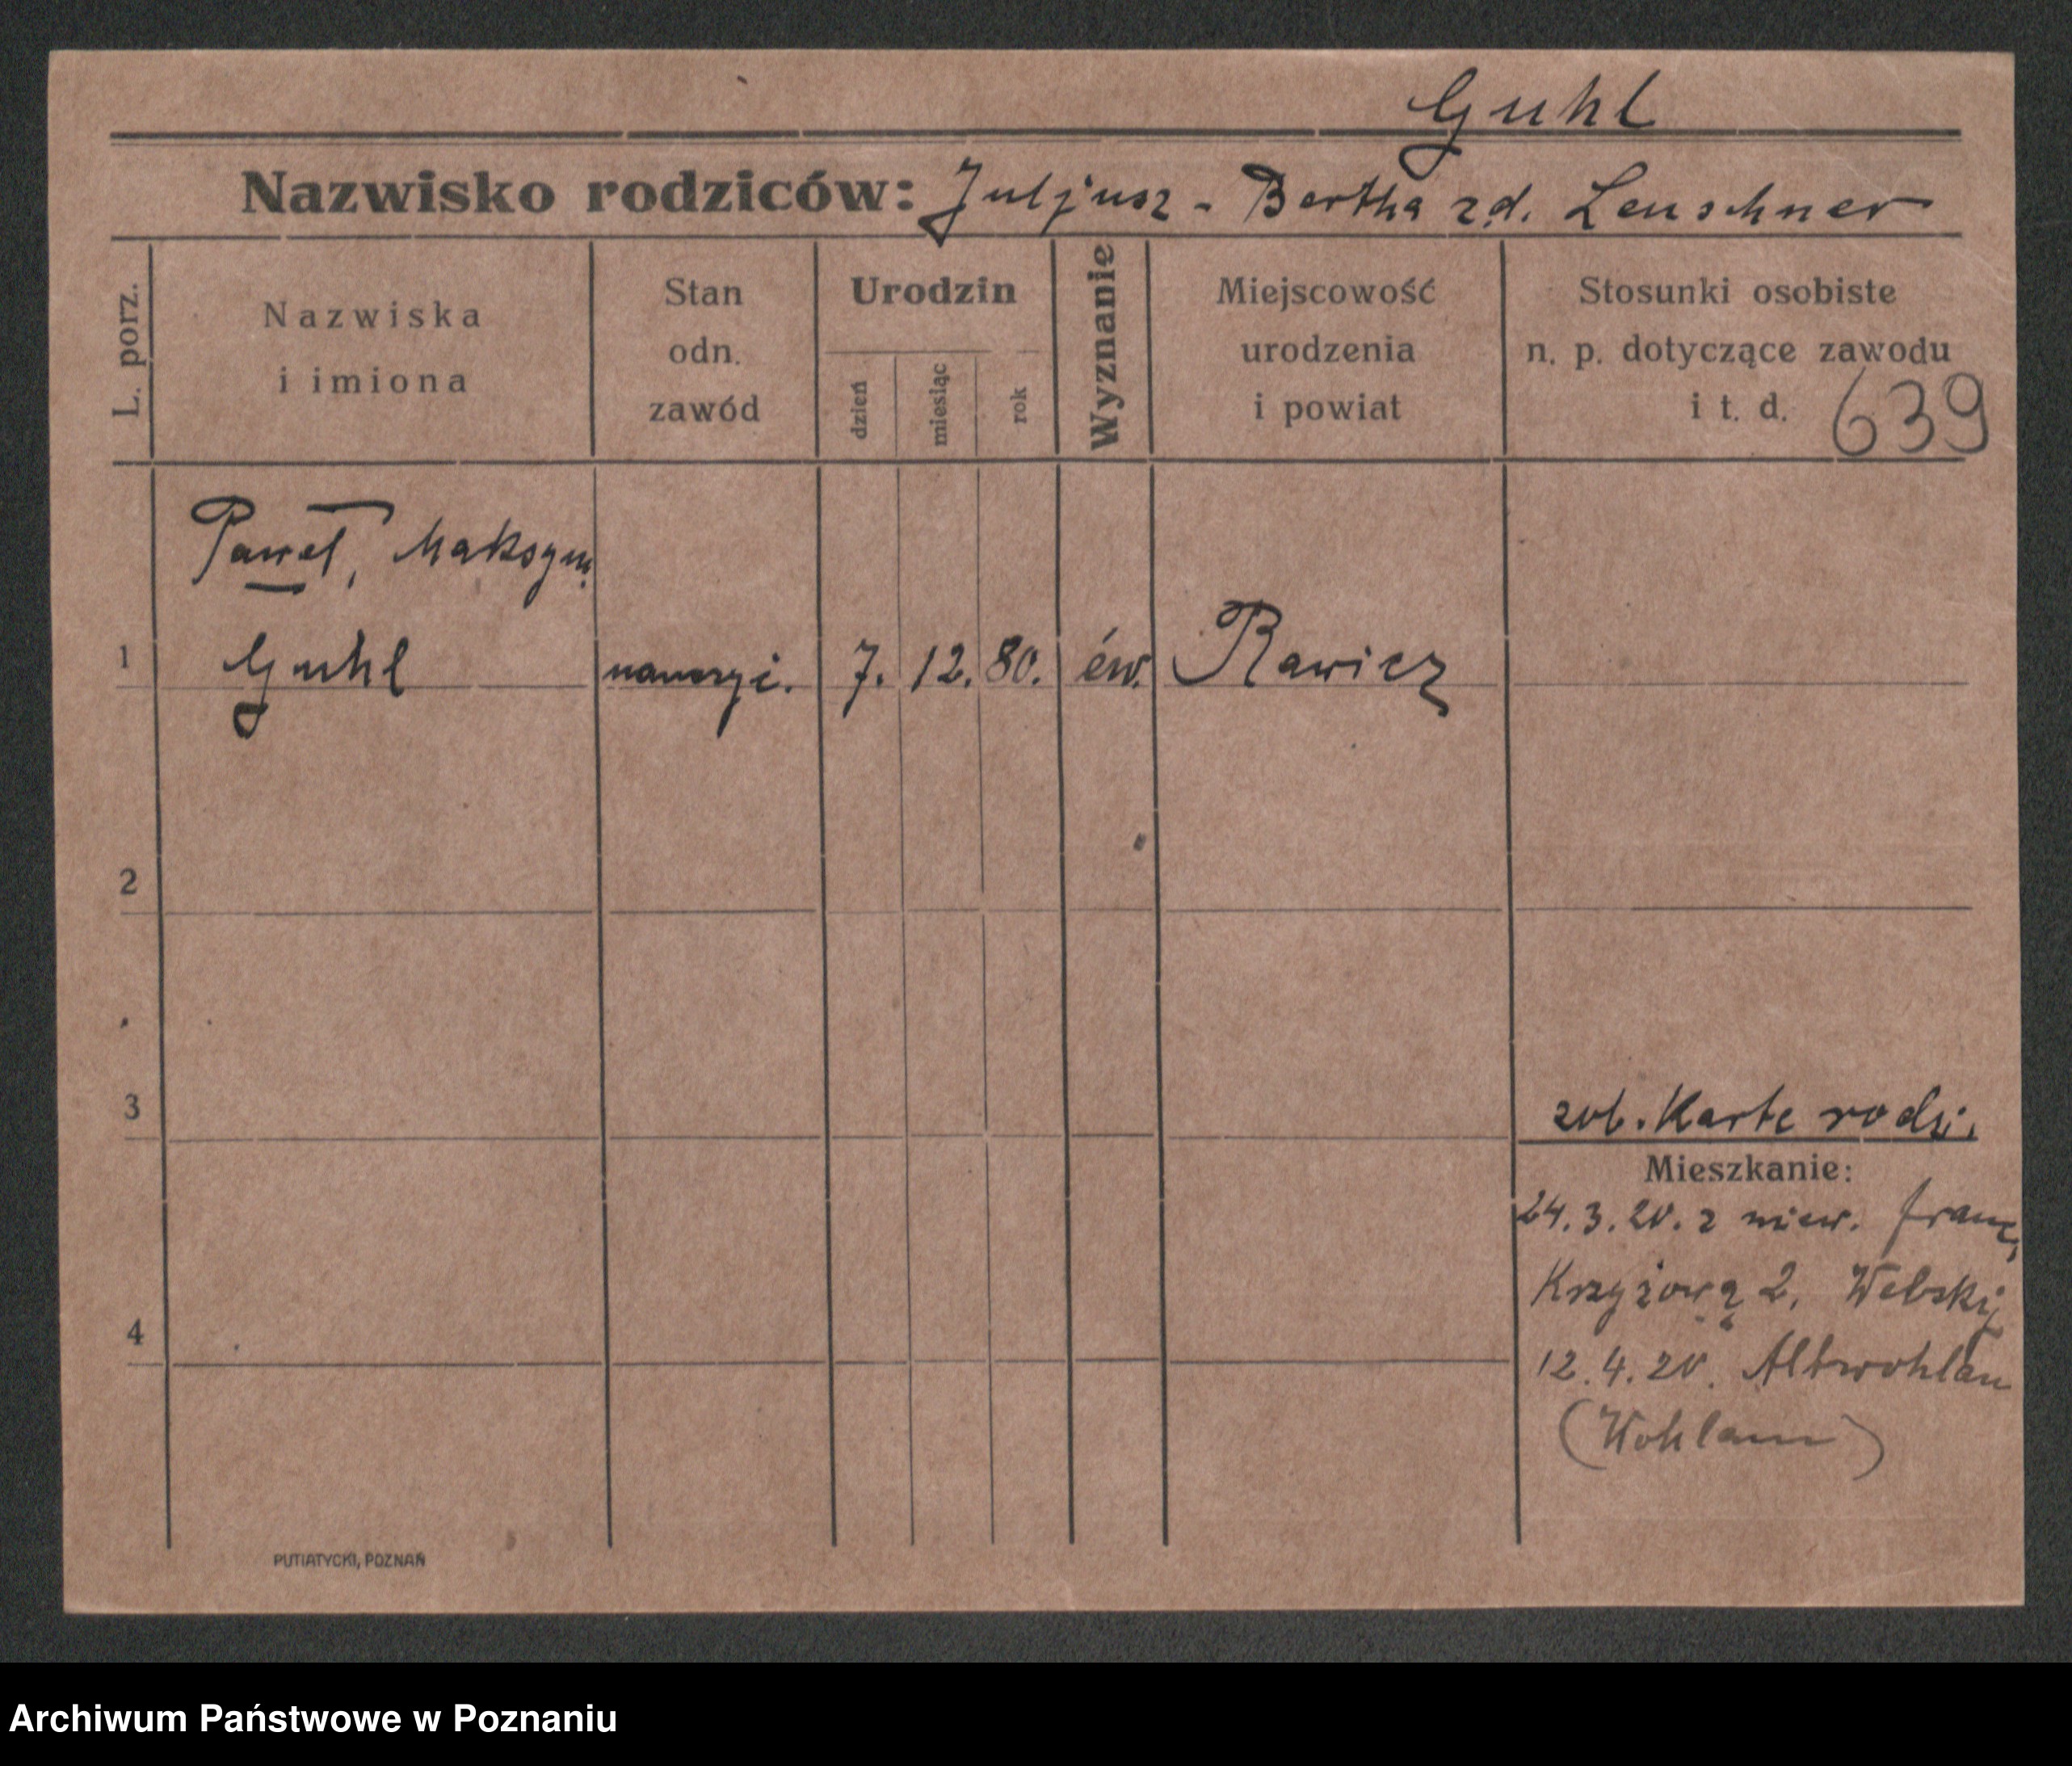 Guhl
Nazwisko rodziców: Juljusz - Bertha zd. Leuschner
L. porz.
Nazwiska
i imiona
Stan
odn.
zawód
Urodzin
dzień
miesiąc
rok
Wyznanie
Miejscowość
urodzenia
i powiat
Stosunki osobiste
n. p. dotyczące zawodu
i t. d.
639
Paweł, Maksym.
1 Guhl 7. 12. 80. ew. Rawicz
2
3
zob. Karte rodz.
Mieszkanie:
24.3.20. z niew. franc.
Krzyżową 2. Webski
4
12.4.20. Altwohlau
(Wohlau)
PUTIATYCKI, POZNAŃ
Archiwum Państwowe w Poznaniu